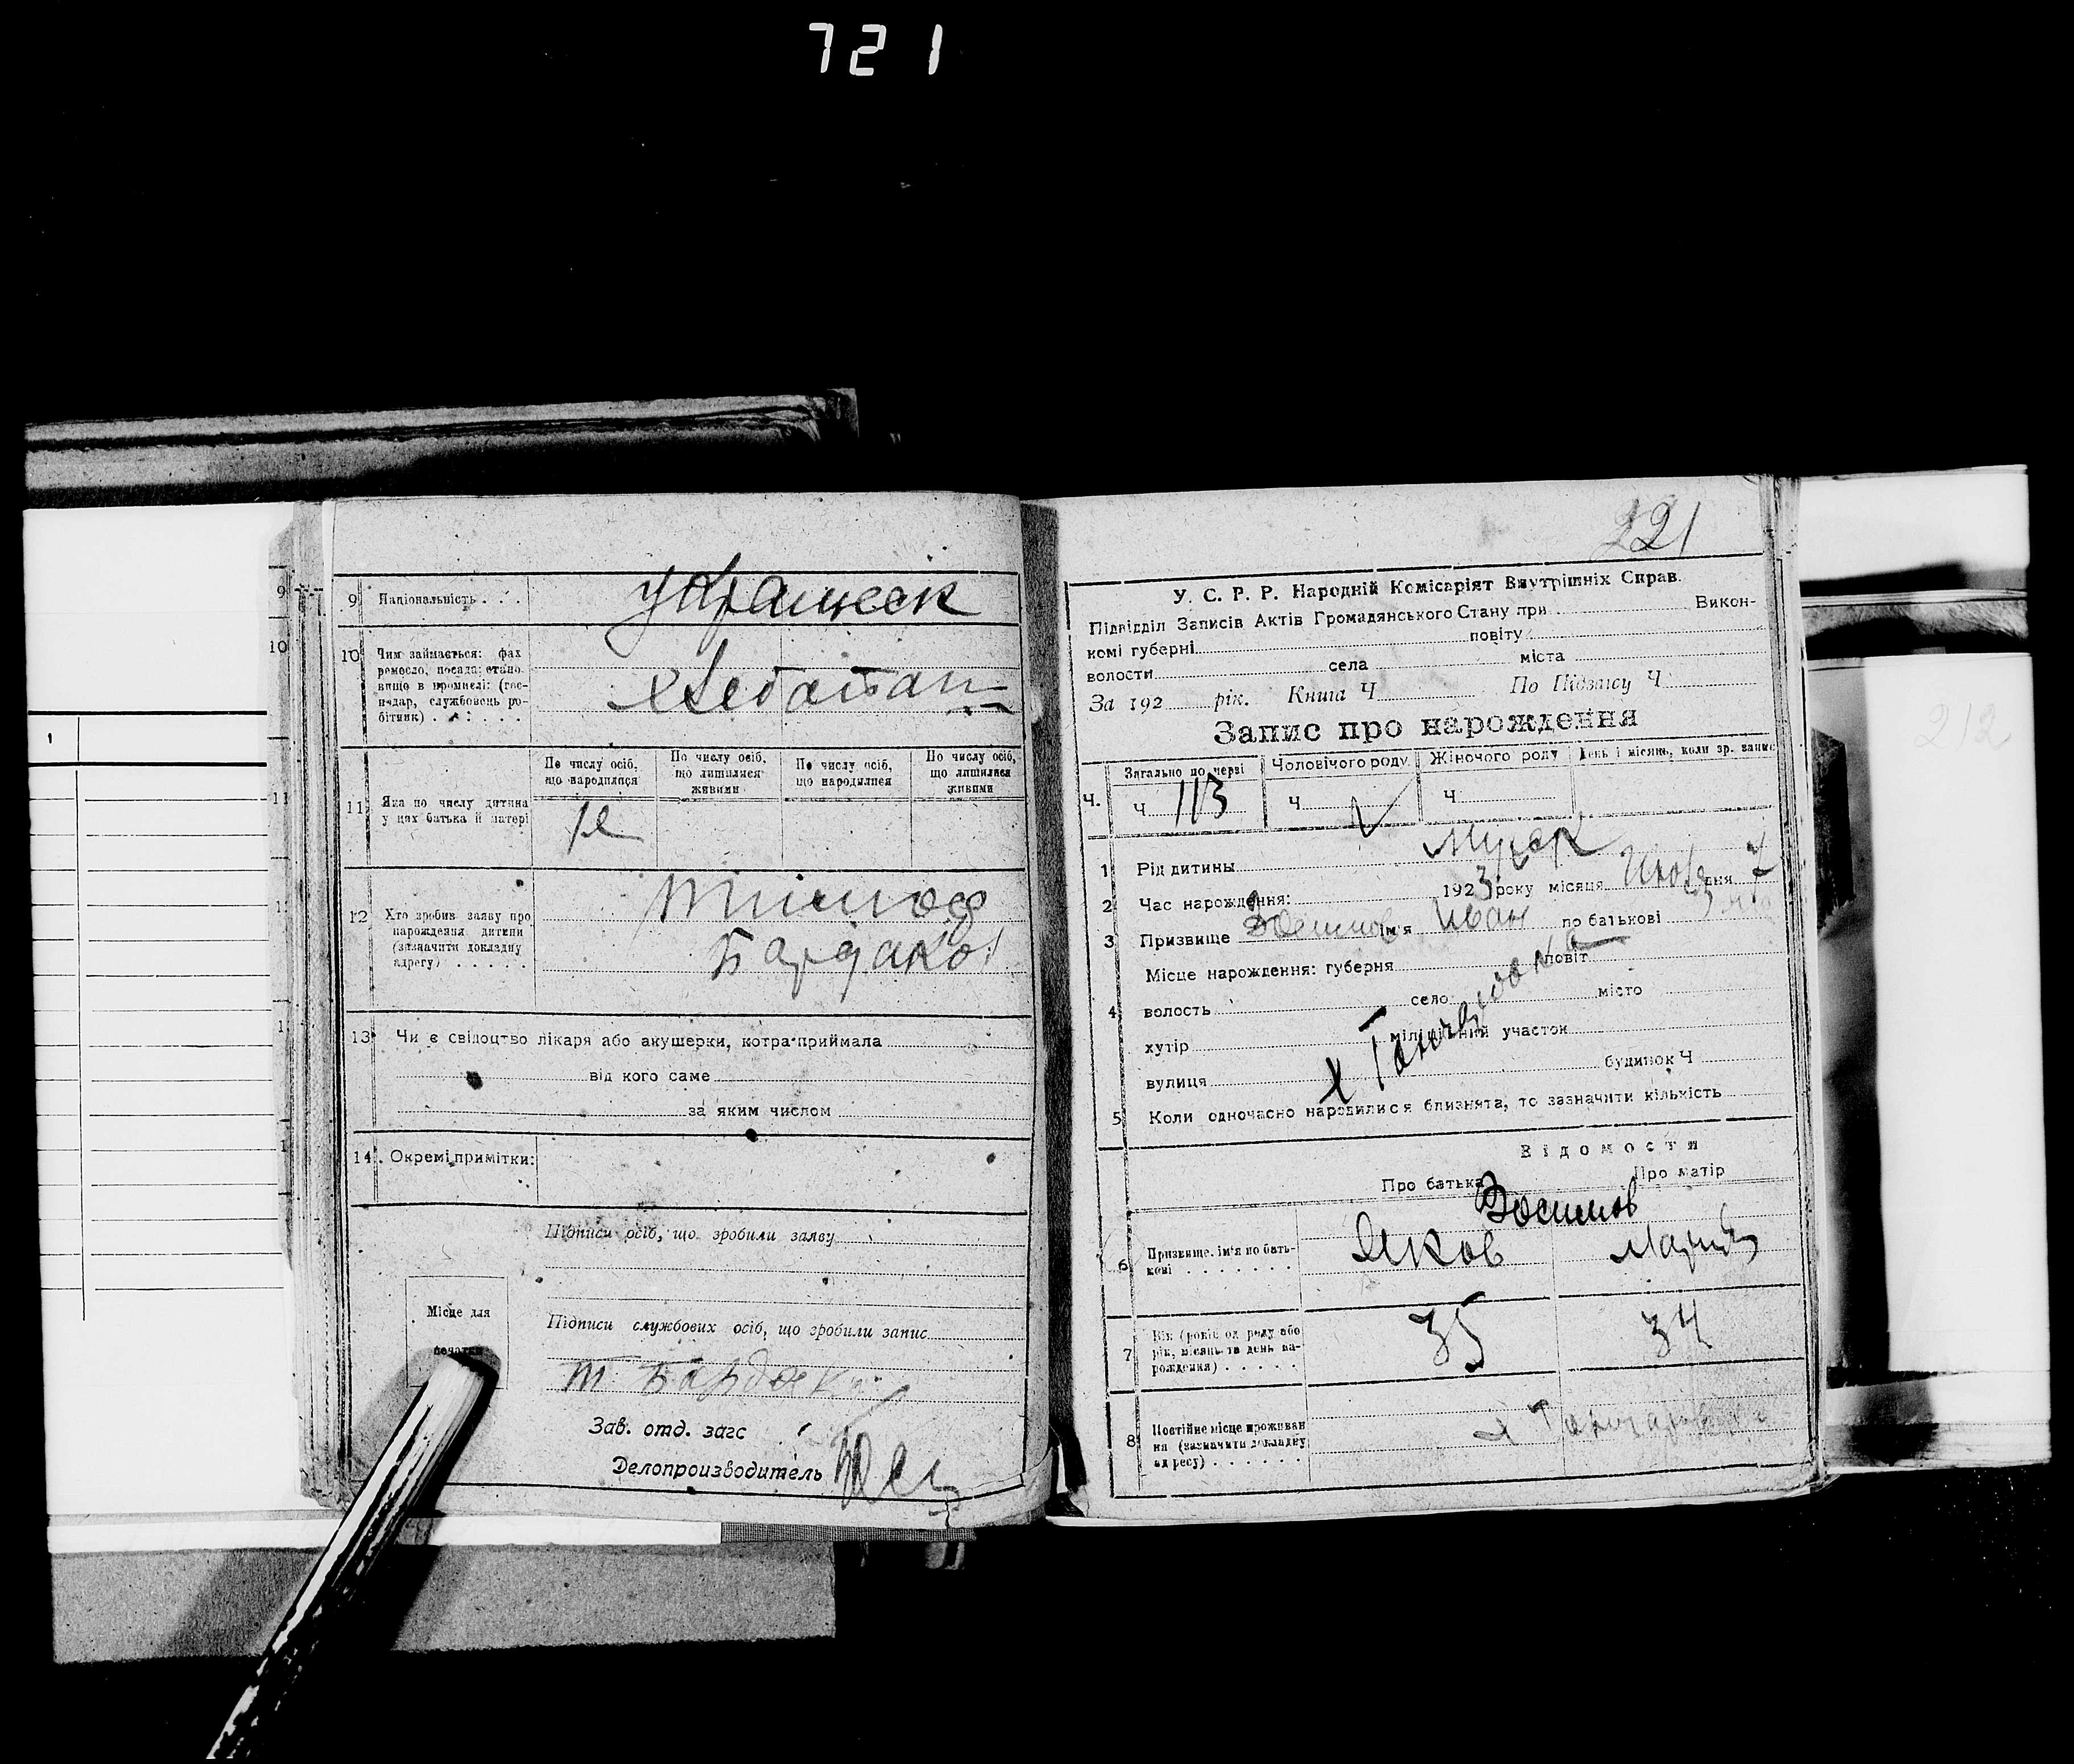 721
9
10
11
1
9 Національність . . .
Украинск
10 Чим займається: фах
ремесло, посада: стано-
вище в промислі: (гос-
подар, службовець ро-
бітник) . . . . . .
хлебопаш
11 Яка по числу дитина
у цих батька й матері
По числу осіб,
що народилися
По числу осіб,
що лишилися
живими
По числу осіб,
що народилися
По числу осіб,
що лишилися
живими
12 Хто зробив заяву про
нарождення дитини
(зазначити докладну
адресу) . . . . .
Тимоф
13 Чи є свідоцтво лікаря або акушерки, котра приймала
від кого саме
за яким числом
14 Окремі примітки:
Підписи осіб, що зробили заяву
Місце для
печатки
Підписи службових осіб, що зробили запис
Зав. отд. загс
Делопроизводитель
221
У. С. Р. Р. Народній Комісаріят Внутрішніх Справ.
Підвідділ Записів Актів Громадянського Стану при Викон-
комі губерні повіту
волости села міста
За 192 рік. Книга Ч По Підзапису Ч
Запис про нарождення
Ч. Загально по черві Чоловічого роду Жіночого роду День і місяць, коли зр. запис
Ч 113 Ч Ч
1 Рід дитины Муж
2 Час нарождення: 1923 року місяця дня 7
3 Призвище Зосимов ім'я Иван по батькові
4 Місце нарождення: губерня повіт
волость село місто
хутір міліційний участок
х Гончаровка
вулиця будинок Ч
5 Коли одночасно народилися близнята, то зазначити кількість
Відомости
Про батька Про матір
Зосимов
6 Призвище, ім'я по бать-
кові . . . . . . .
Яков Мария
7 Вік (років од роду або
рік, місяць та день на-
рождення) . . . . .
35 34
8 Постійне місце проживан
ня (зазначити докладну
адресу) . . . . . .
х Гончаровка
212